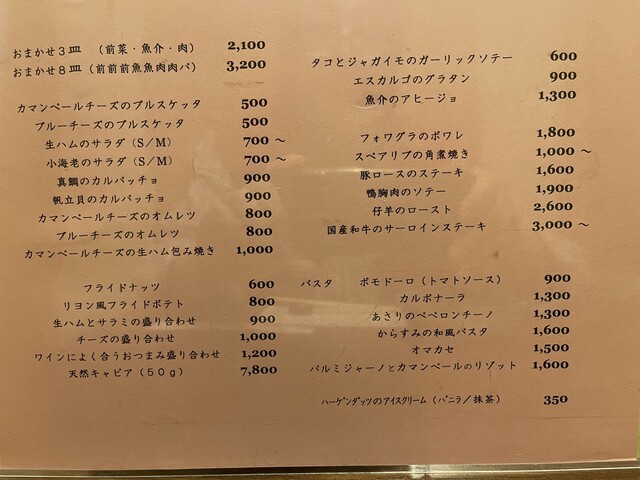 おまかせ3皿 （前菜・魚介・肉） 2,100
おまかせ8皿（前前前魚魚肉肉パ） 3,200
カマンベールチーズのブルスケッタ 500
ブルーチーズのブルスケッタ 500
生ハムのサラダ（S/M） 700～
小海老のサラダ（S/M） 700～
真鯛のカルパッチョ 900
帆立貝のカルパッチョ 900
カマンベールチーズのオムレツ 800
ブルーチーズのオムレツ 800
カマンベールチーズの生ハム包み焼き 1,000
フライドナッツ 600
リヨン風フライドポテト 800
生ハムとサラミの盛り合わせ 900
チーズの盛り合わせ 1,000
ワインによく合うおつまみ盛り合わせ 1,200
天然キャビア（50g） 7,800
タコとジャガイモのガーリックソテー 600
エスカルゴのグラタン 900
魚介のアヒージョ 1,300
フォワグラのポワレ 1,800
スペアリブの角煮焼き 1,000～
豚ロースのステーキ 1,600
鴨胸肉のソテー 1,900
仔羊のロースト 2,600
国産和牛のサーロインステーキ 3,000～
パスタ ポモドーロ（トマトソース） 900
カルボナーラ 1,300
あさりのペペロンチーノ 1,300
からすみの和風パスタ 1,600
オマカセ 1,500
パルミジャーノとカマンベールのリゾット 1,600
ﾊｰｹﾞﾝﾀﾞｯﾂのアイスクリーム（ﾊﾞﾆﾗ／抹茶） 350